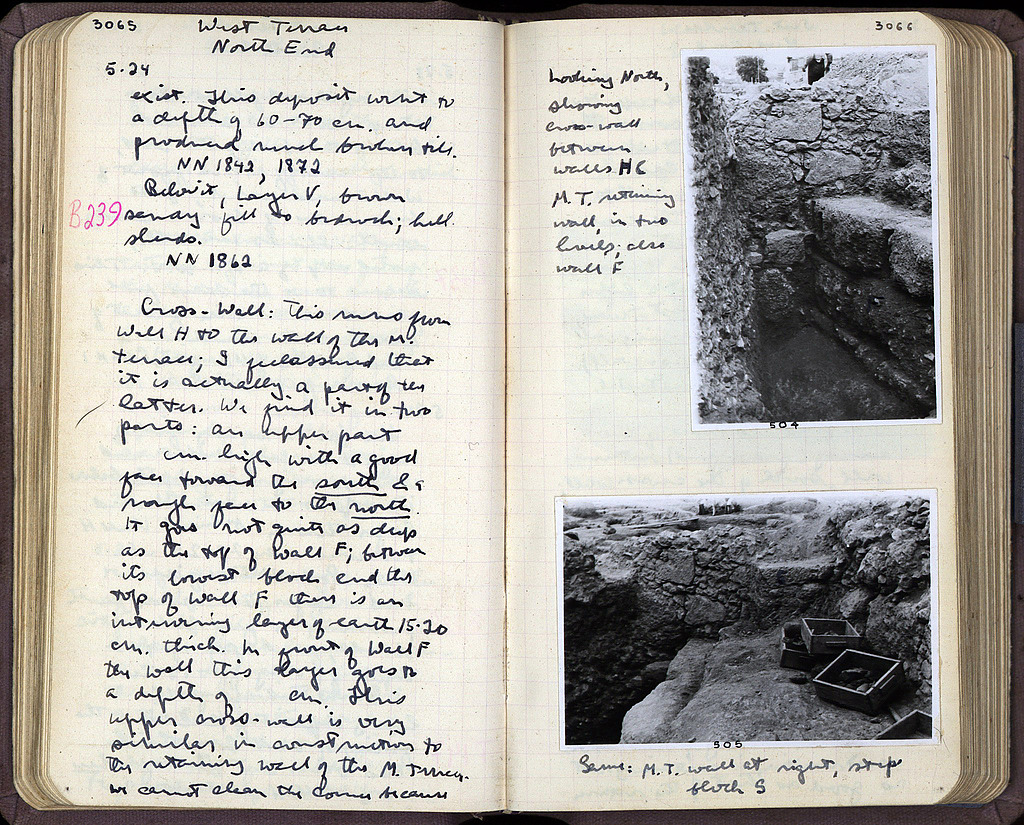 3065
West Terrace
North End
5.24
exist. This deposit went to
a depth of 60-70 cm. and
produced much broken tile.
NN 1842, 1872
Below it, Layer V, brown
B239
sandy fill to bedrock; hell.
sherds.
NN 1862
Cross-Wall: This runs from
Wall H to the wall of the M.
Terrace; I that
it is actually a part of the
latter. We find it in two
parts: an upper part
cm. high with a good
face toward the south & a
rough face to the north.
It goes not quite as deep
as the top of Wall F; between
its lowest block and the
top of Wall F there is an
intervening layer of earth 15-20
cm. thick. In front of Wall F
the wall this layer goes to
a depth of cm. This
upper cross-wall is very
similar in construction to
the retaining wall of the M. Terrace.
We cannot clean the corner because
3066
Looking North,
showing
cross-wall
between
walls H &
M.T. retaining
wall, in two
levels; also
wall F
504
505
Same: M.T. wall at right, step
block S